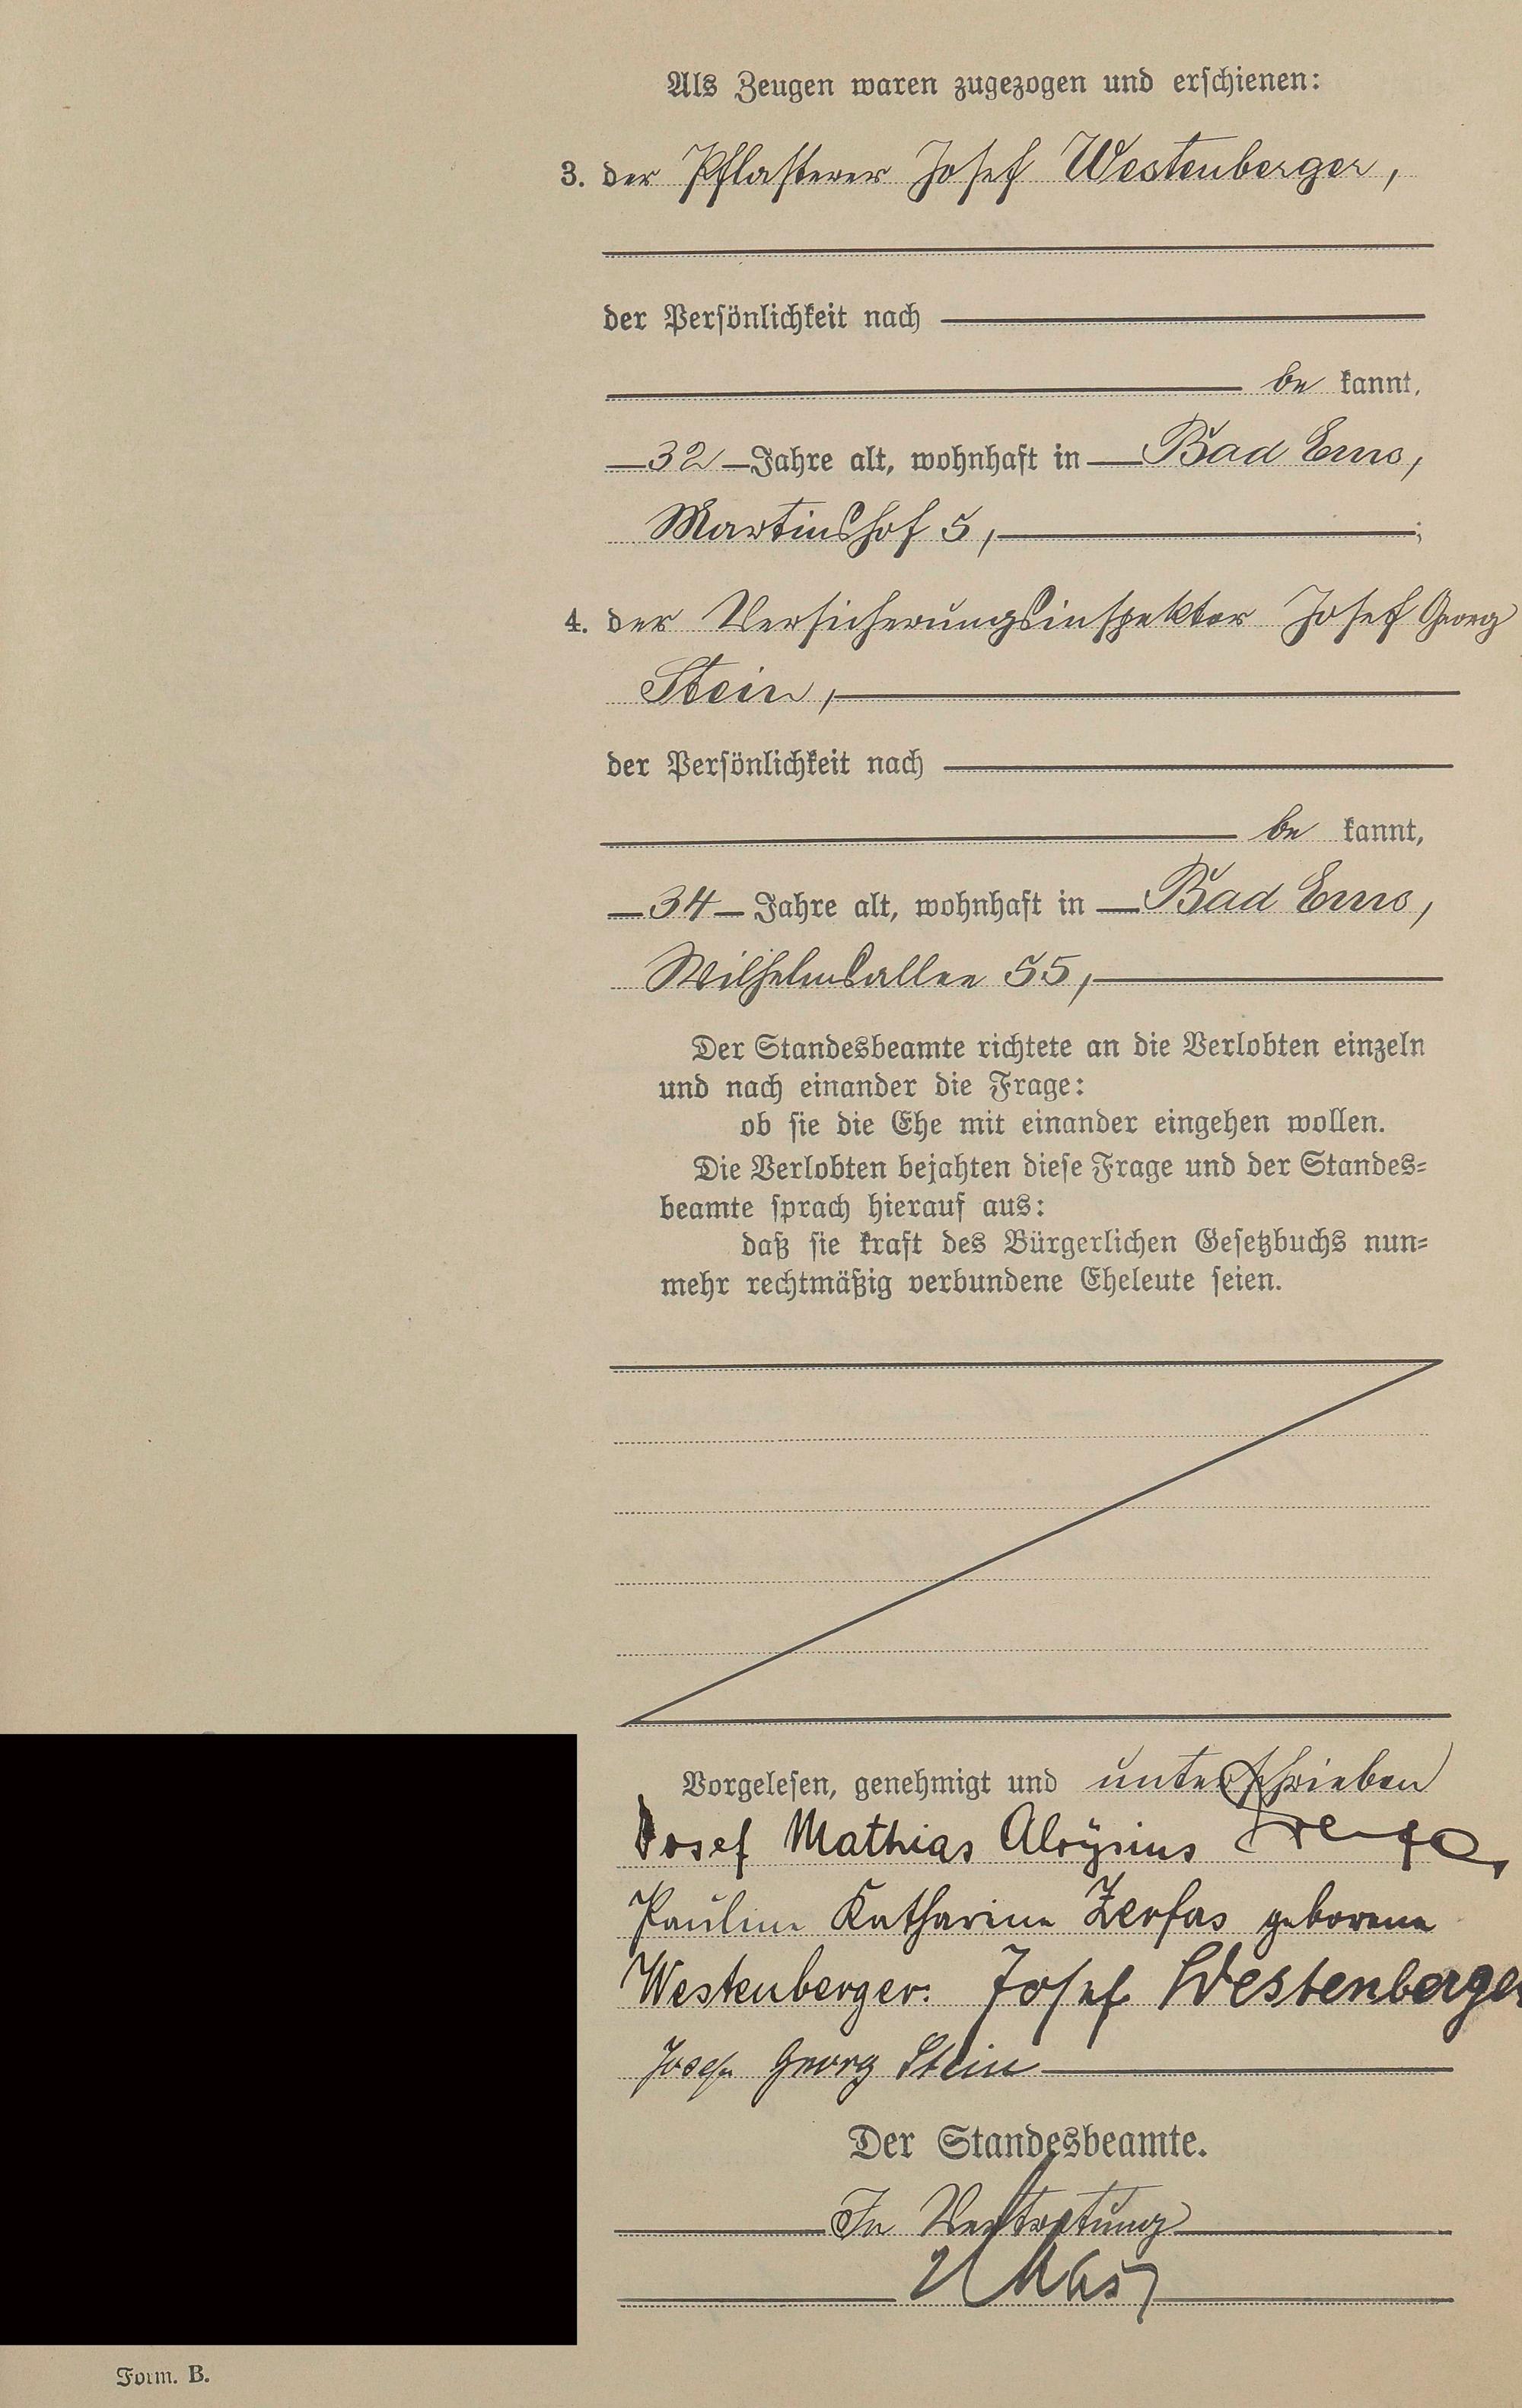 Als Zeugen waren zugezogen und erschienen:
3. der Pflasterer Josef Westenberger,
der Persönlichkeit nach
be kannt,
32 Jahre alt, wohnhaft in Bad Ems,
Martinshof 5, ;
4. der Versicherungsinspektor Josef Georg
Stein,
der Persönlichkeit nach
be kannt,
34 Jahre alt, wohnhaft in Bad Ems,
Wilhelmsallee 55,
Der Standesbeamte richtete an die Verlobten einzeln
und nach einander die Frage:
ob sie die Ehe mit einander eingehen wollen.
Die Verlobten bejahten diese Frage und der Standes=
beamte sprach hierauf aus:
daß sie kraft des Bürgerlichen Gesetzbuchs nun=
mehr rechtmäßig verbundene Eheleute seien.
Vorgelesen, genehmigt und unterschrieben
Josef Mathias Aloÿsius Zerfas
Pauline Katharina Zerfas geborene
Westenberger. Josef Westenberger
Josef Georg Stein
Der Standesbeamte.
In Vertretung
Form. B.